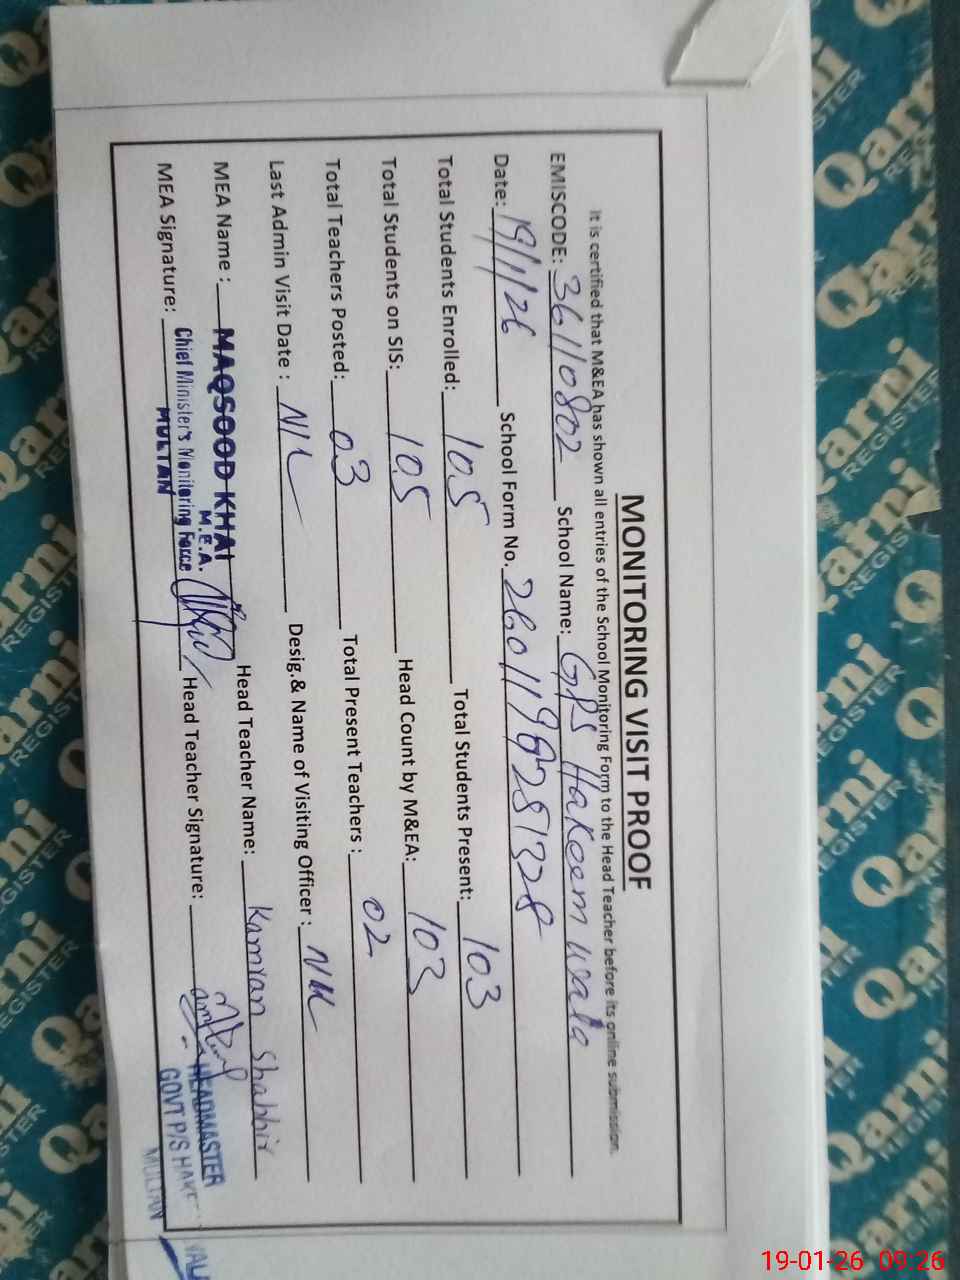 MONITORING VISIT PROOF
It is certified that M&EA has shown all entries of the School Monitoring Form to the Head Teacher before its online submission.
EMISCODE: 36110802 School Name: GPS Hakeem wala
Date: 19/1/26 School Form No. 2601196281328
Total Students Enrolled: 105 Total Students Present: 103
Total Students on SIS: 105 Head Count by M&EA: 103
Total Teachers Posted: 03 Total Present Teachers : 02
Last Admin Visit Date : NIL Desig.& Name of Visiting Officer : NIL
MEA Name : MAQSOOD KHAN Head Teacher Name: Kamran Shabbir
M.E.A.
MEA Signature: Chief Minister's Monitoring Force Head Teacher Signature:
MULTAN
HEADMASTER
GOVT P/S HAKE WALA
MULTAN
Qarni
REGISTER
19-01-26 09:26